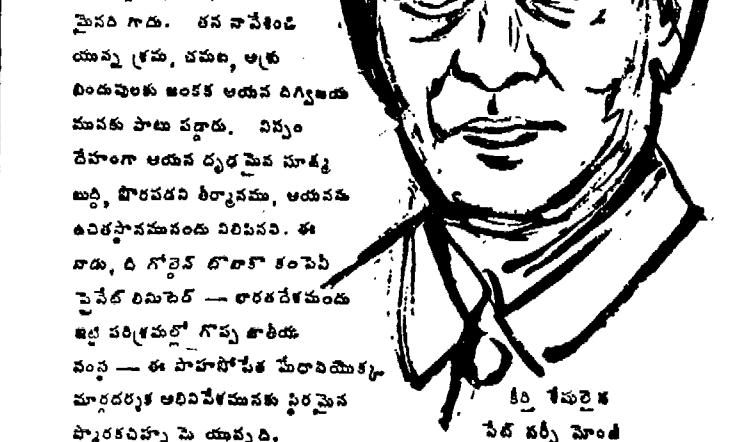 మైనది గాదు. తన నావేశించి
యున్న శ్రమ, చమట, ఆశ్రు
బిందువులకు జంకక ఆయన దిగ్విజయ
మునకు పాటు పడ్డారు. నిస్సం
దేహంగా ఆయన దృఢ మైన సూక్ష్మ
బుద్ధి, పొరపడని తీర్మానము, ఆయనను
ఉచితస్థానమునందు నిలిపినవి. ఈ
నాడు, ది గోల్డెన్ టొబాకొ కంపెనీ
ప్రైవేట్ లిమిటెడ్ — భారతదేశమందు
ఇట్టి పరిశ్రమల్లో గొప్ప జాతీయ
సంస్థ — ఈ సాహసోపేత మేధావియొక్క
మార్గదర్శక ఆభినివేశమునకు స్థిరమైన
స్మారకచిహ్న మై యున్నది.
కీర్తి శేషులైన
సేట్ నర్సీ మోంజీ